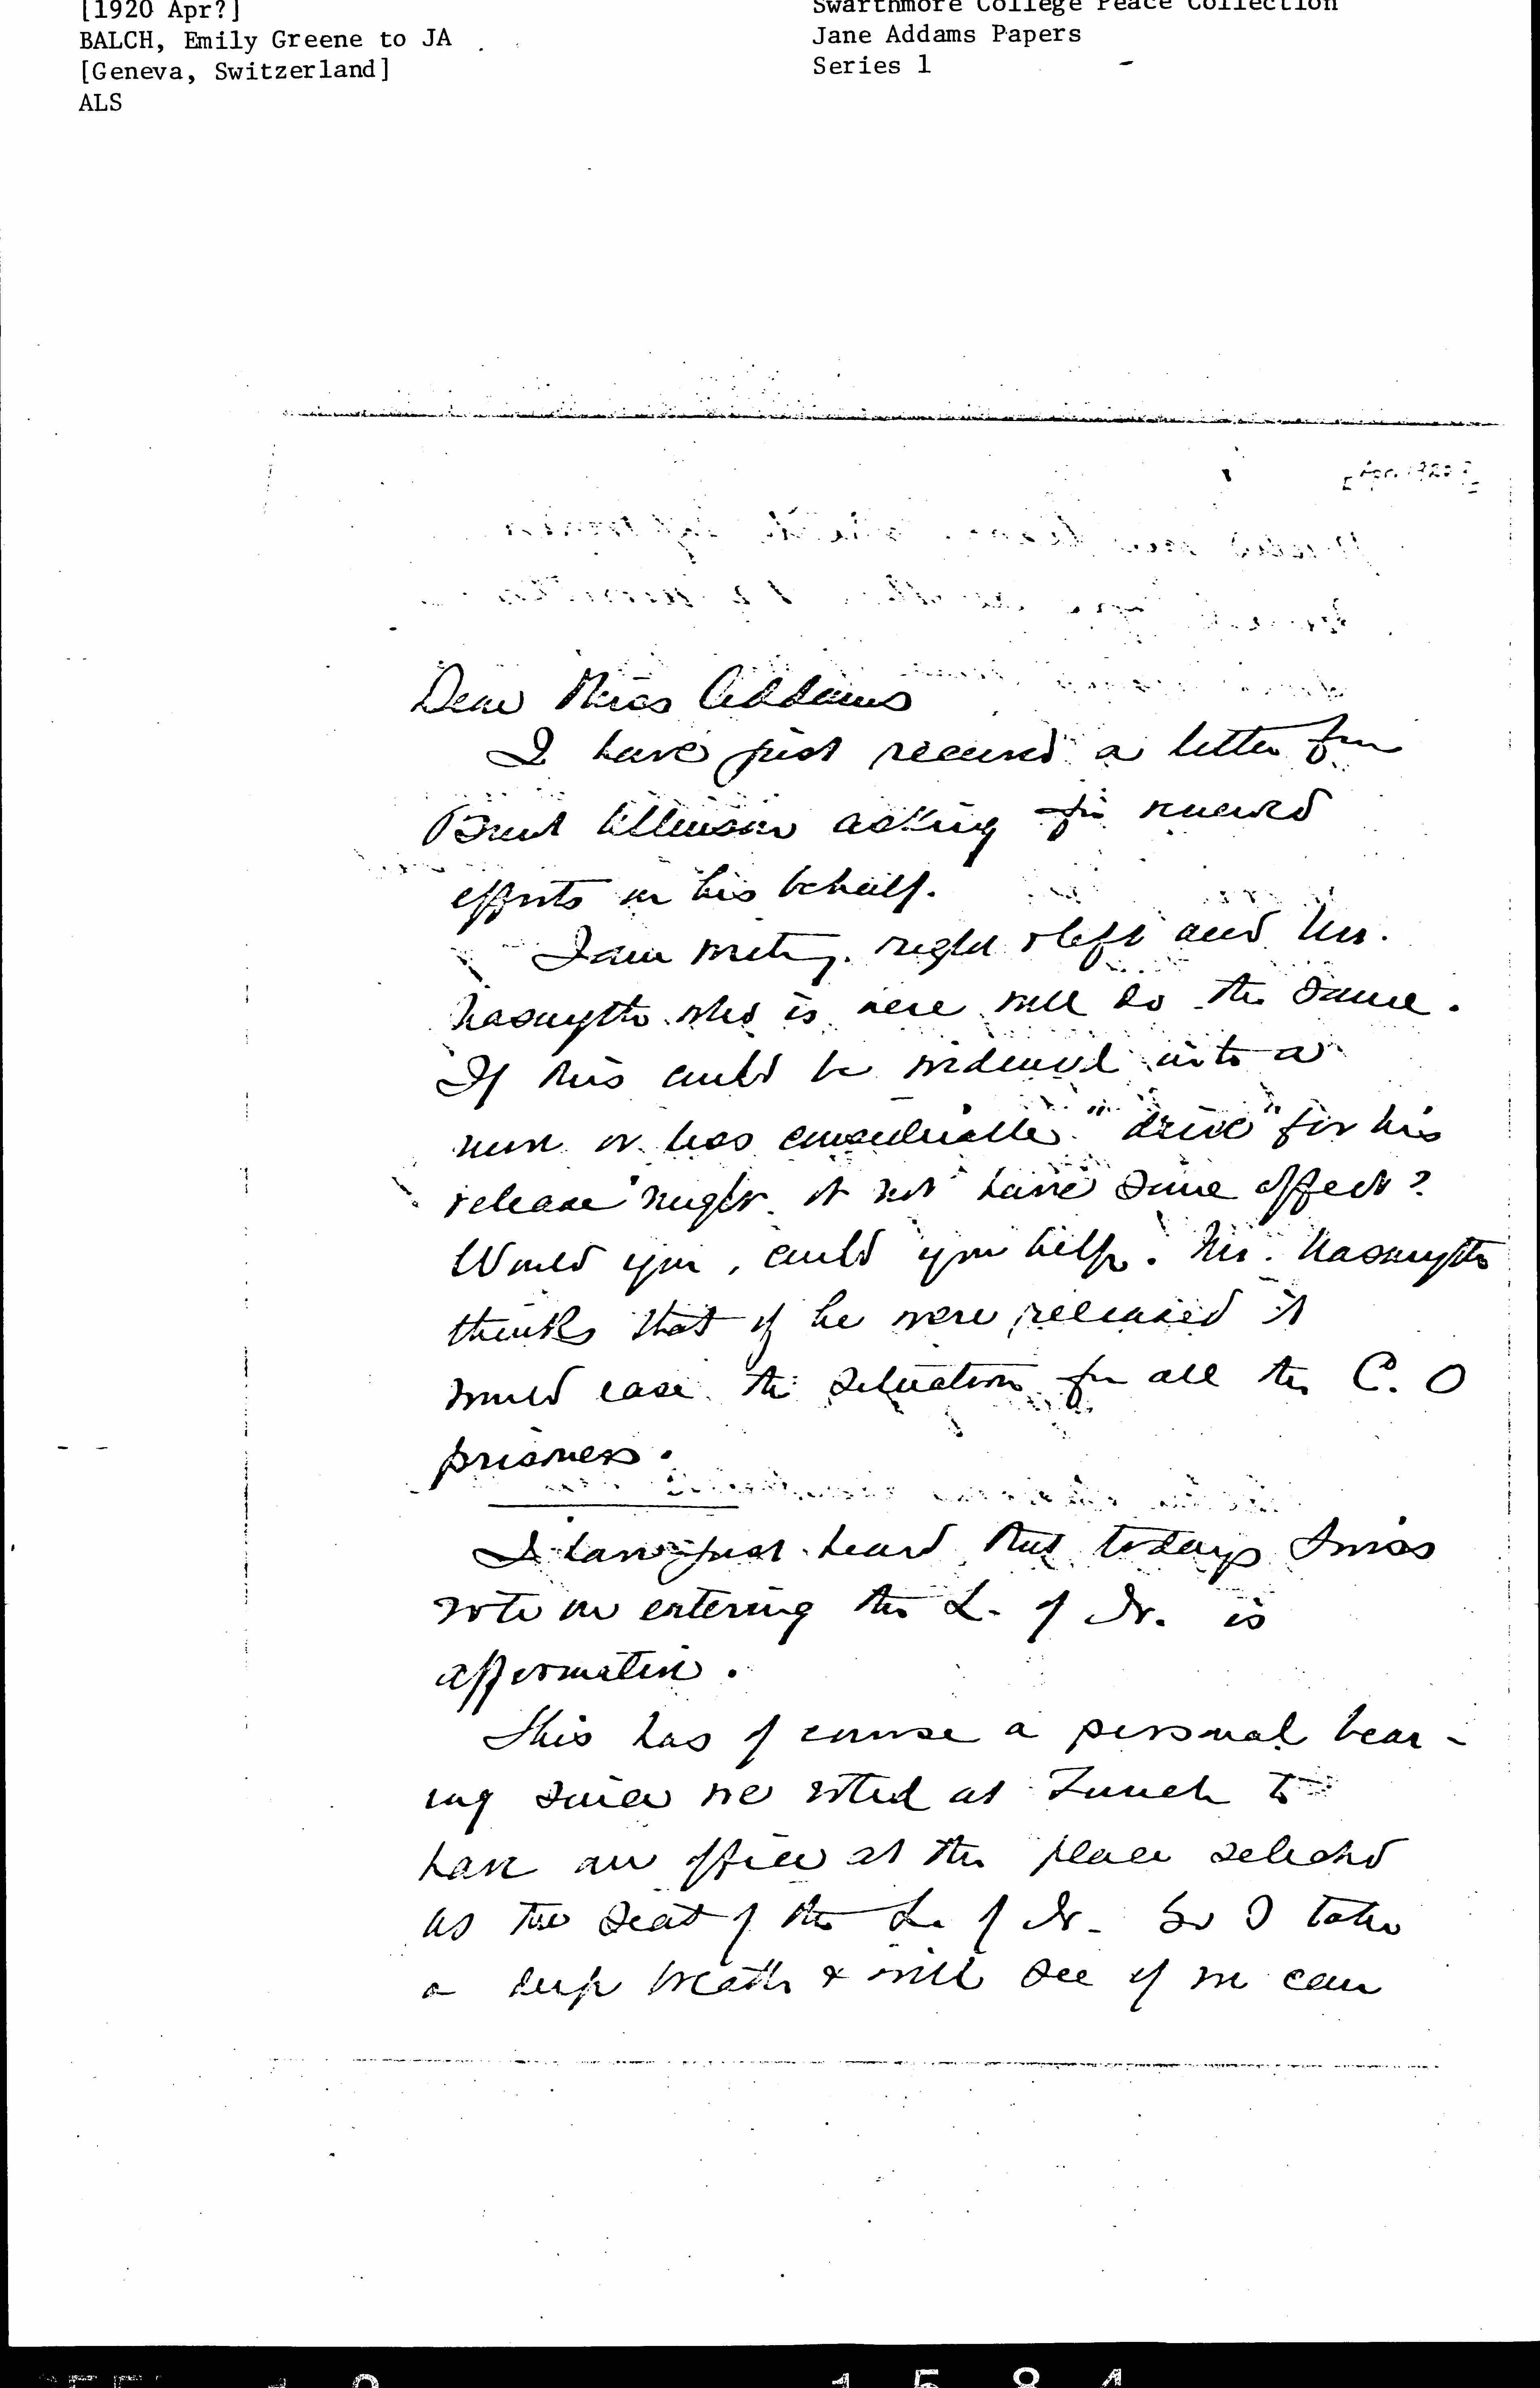 [1920 Apr?]
BALCH, Emily Greene to JA
[Geneva, Switzerland]
ALS
Swarthmore College Peace Collection
Jane Addams Papers
Series 1
Dear Miss Addams
I have just received a letter from
Brent Allinson asking for renewed
efforts on his behalf.
I am writing right & left and Mr.
Nasmyth who is here will do the same.
If this could be widened into a
more or less considerable "drive" for his
release might it not have some effect?
Would you, could you help. Mr. Nasmyth
thinks that if he were released it
would ease the situation for all the C. O
prisoners.
I have just heard that todays Swiss
vote on entering the L. of N. is
affirmative.
This has of course a personal bear-
ing since we voted at Zurich to
have an office at the place selected
as the seat of the L. of N. So I take
a deep breath & will see if we can
1 5 8 4